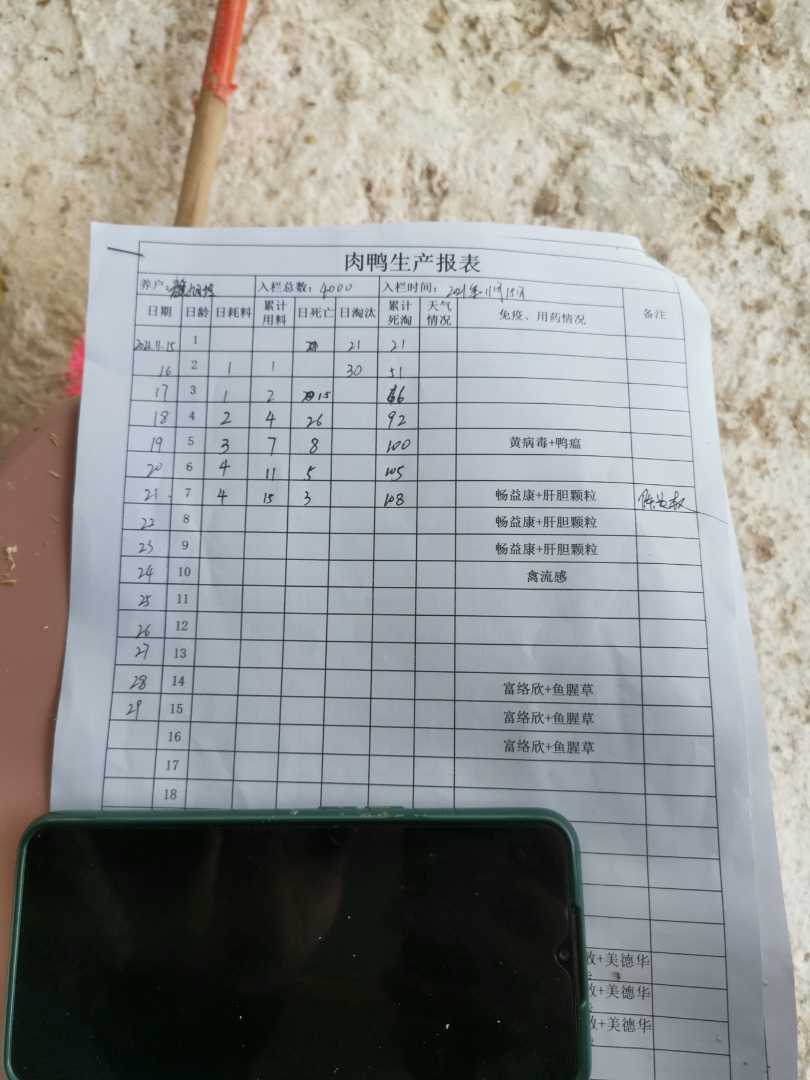 肉鸭生产报表
养户: 入栏总数: 4000 入栏时间: 2021年11月15日
日期 日龄 日耗料 累计用料 日死亡 日淘汰 累计死淘 天气情况 免疫、用药情况 备注
2021.11.15 1 21 21
16 2 1 1 30 51
17 3 1 2 15 66
18 4 2 4 26 92
19 5 3 7 8 100 黄病毒+鸭瘟
20 6 4 11 5 105
21 7 4 15 3 108 畅益康+肝胆颗粒
22 8 畅益康+肝胆颗粒
23 9 畅益康+肝胆颗粒
24 10 禽流感
25 11
26 12
27 13
28 14 富络欣+鱼腥草
29 15 富络欣+鱼腥草
16 富络欣+鱼腥草
17
18
+美德华
+美德华
+美德华